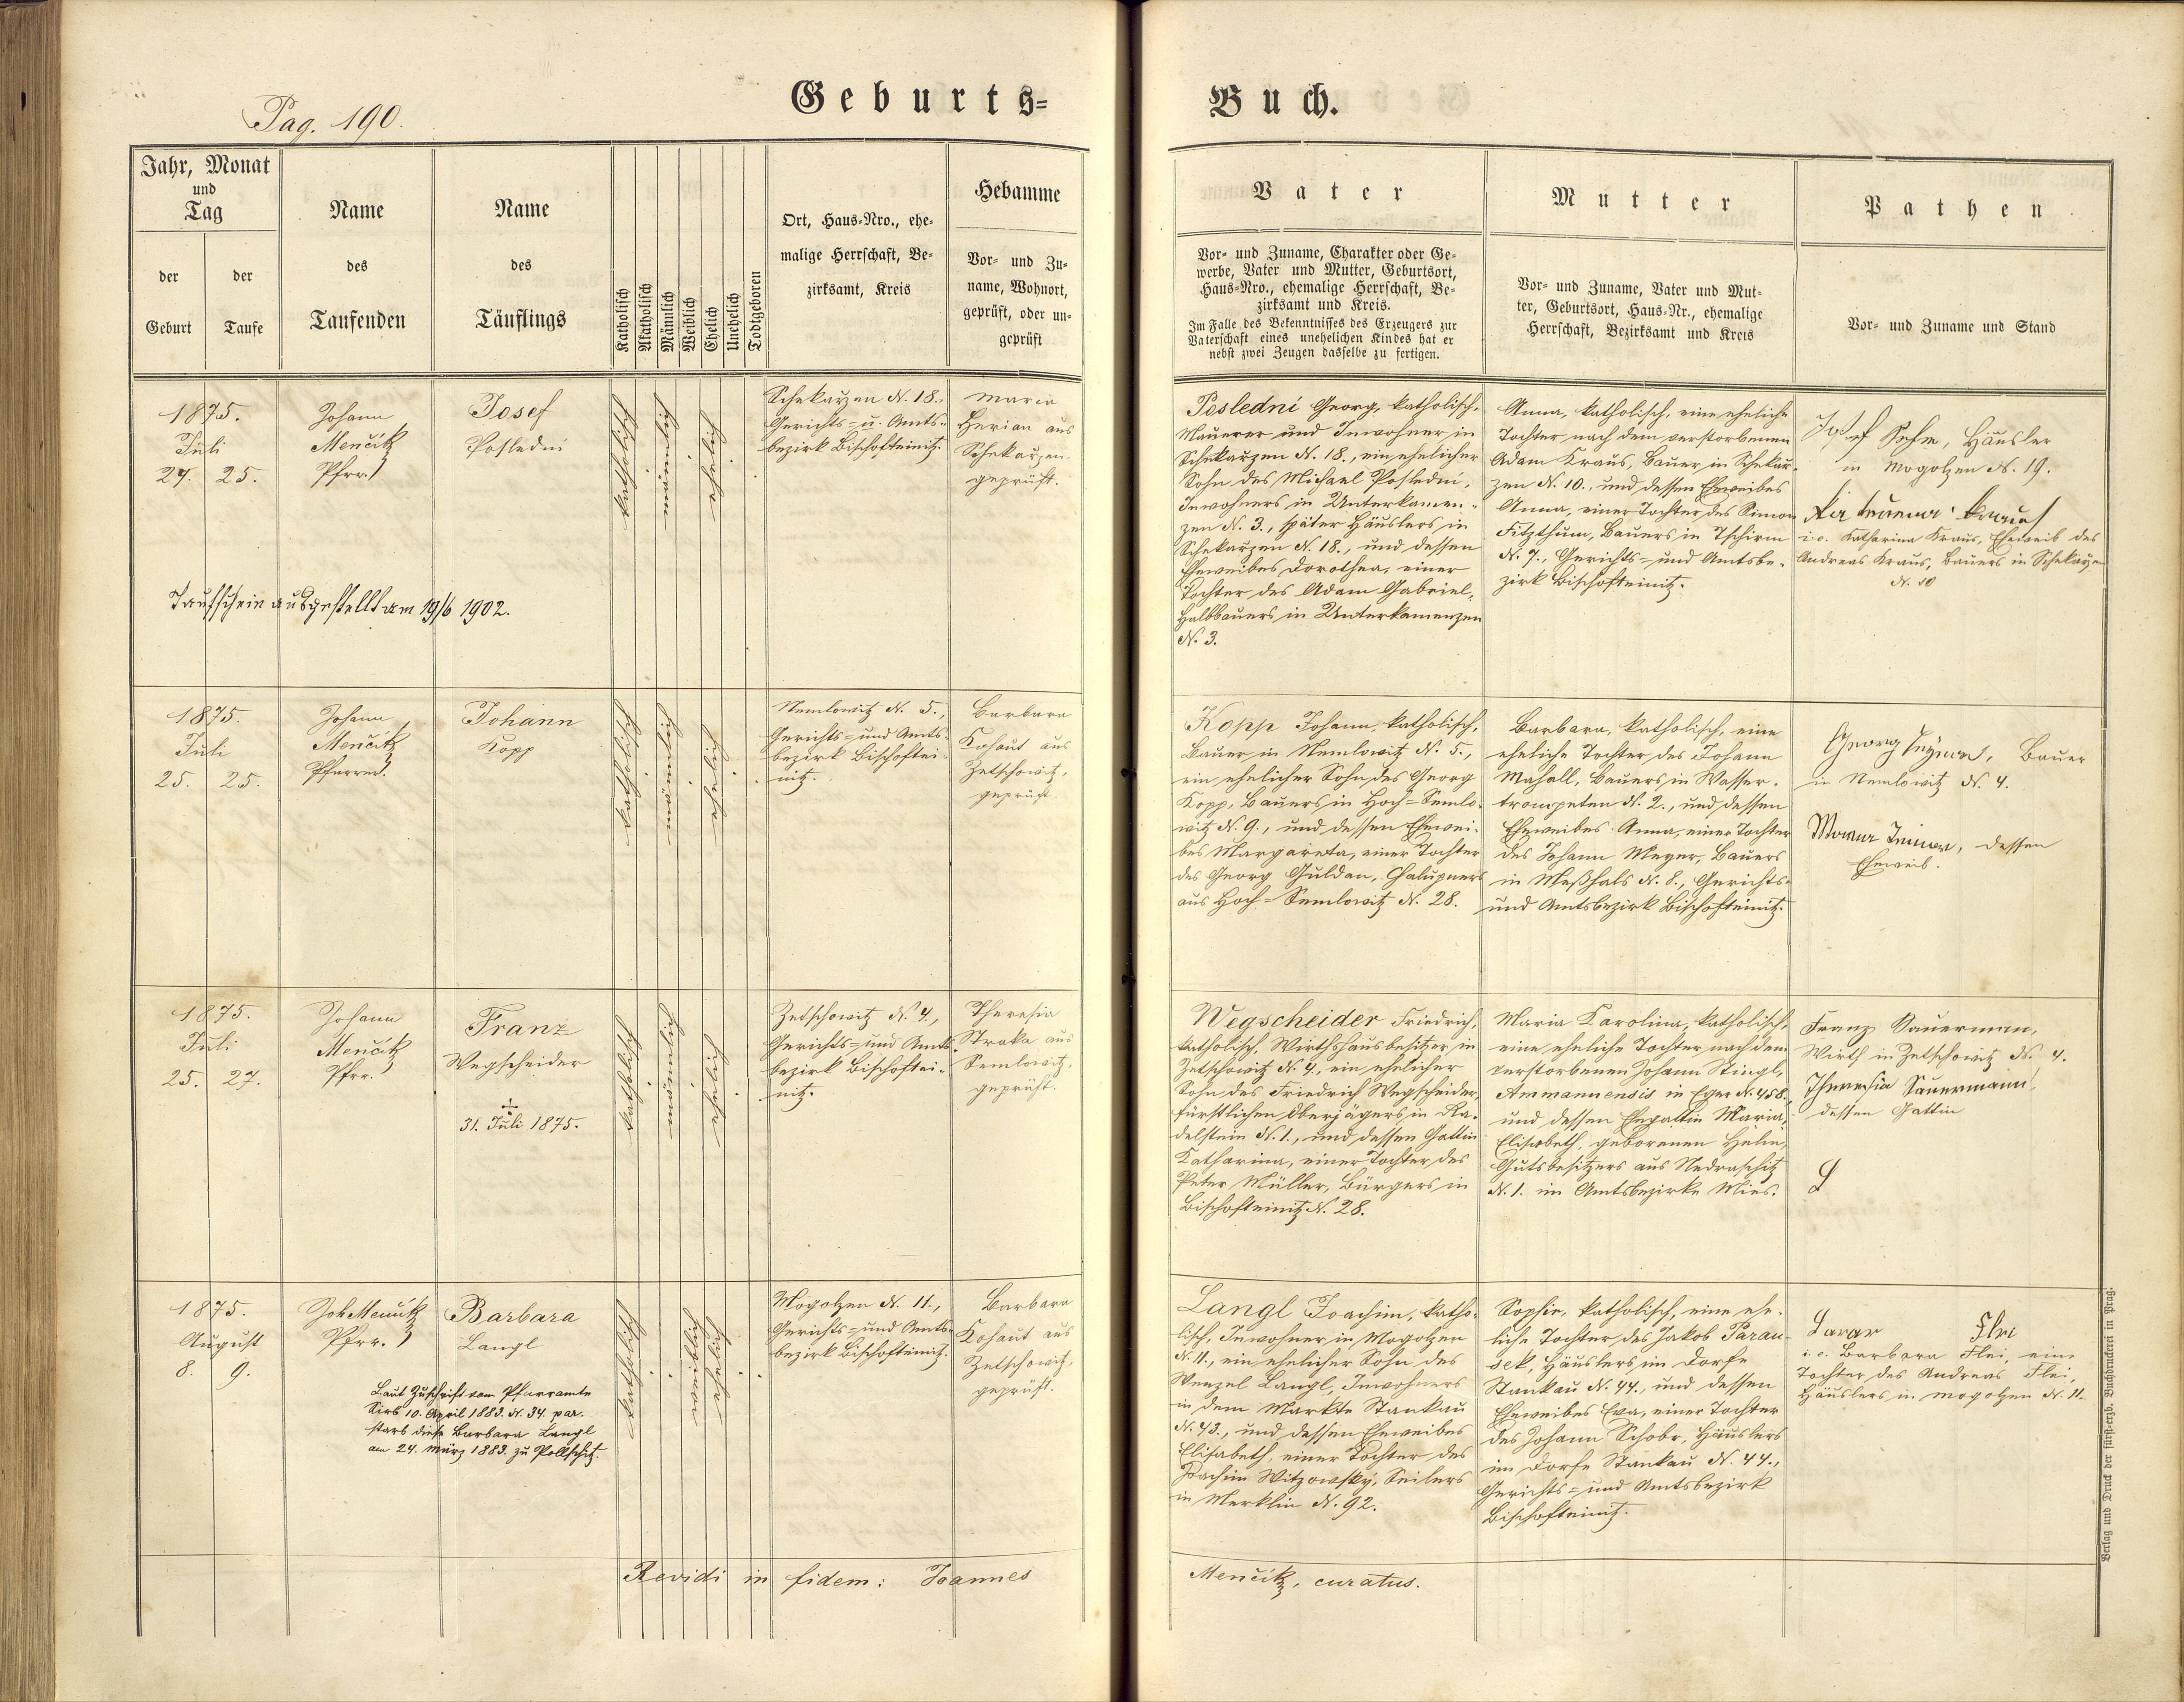 Pag. 190.
Geburts=
Buch.
Jahr, Monat
und
Tag
der
Geburt
der
Taufe
Name
des
Taufenden
Name
des
Täuflings
Katholisch
Akatholisch
Männlich
Weiblich
Ehelich
Unehelich
Todtgeboren
Ort, Haus=Nro., ehe=
malige Herrschaft, Be=
zirksamt, Kreis
Hebamme
Vor= und Zu=
name, Wohnort,
geprüft, oder un=
geprüft
Vater
Vor= und Zuname, Charakter oder Ge=
werbe, Vater und Mutter, Geburtsort,
Haus=Nro., ehemalige Herrschaft, Be=
zirksamt und Kreis.
Im Falle des Bekenntnisses des Erzeugers zur
Vaterschaft eines unehelichen Kindes hat er
nebst zwei Zeugen dasselbe zu fertigen.
Mutter
Vor= und Zuname, Vater und Mut=
ter, Geburtsort, Haus=Nr., ehemalige
Herrschaft, Bezirksamt und Kreis
Pathen
Vor= und Zuname und Stand
1875.
Juli
24. 25.
Johann
Menčik
Pfrr.
Josef
Poslední
katholisch
männlich
ehelich
Schekarzen N. 18.,
Gerichts= u. Amts=
bezirk Bischofteinitz.
Maria
Herian aus
Schekarzen
geprüft.
Poslední Georg, katholisch,
Maurer und Inwohner in
Schekarzen N. 18., ein ehelicher
Sohn des Michael Poslední,
Inwohners in Unterkamen=
zen N. 3., später Häuslers in
Schekarzen N. 18., und dessen
Eheweibes Dorothea, einer
Tochter des Adam Gabriel,
Halbbauers in Unterkamenzen
N. 3.
Anna, katholisch, eine eheliche
Tochter nach dem verstorbenen
Adam Kraus, Bauer in Schekar=
zen N. 10., und dessen Eheweibes
Anna, einer Tochter des Simon
Fitzthum, Bauers in Tschirm
N. 7., Gerichts= und Amtsbe=
zirk Bischofteinitz.
Josef, Häusler
in Mogolzen N. 19.
Kraus
i. e. Katharina Kraus, Eheweib des
Andreas Kraus, Bauers in Schekarzen
N. 10
Taufschein ausgestellt am 19/6 1902.
1875.
Juli
25. 25.
Johann
Menčik
Pfarrer.
Johann
Kopp
katholisch
männlich
ehelich
Nemlowitz N. 5.,
Gerichts= und Amts=
bezirk Bischoftei=
nitz.
Barbara
Kohaut aus
Zetschowitz,
geprüft.
Kopp Johann, katholisch,
Bauer in Nemlowitz N. 5.,
ein ehelicher Sohn des Georg
Kopp, Bauers in Hoch=Semlo=
witz N. 9., und dessen Ehewei=
bes Margareta, einer Tochter
des Georg Guldan, Chalupners
aus Hoch=Semlowitz N. 28.
Barbara, katholisch, eine
eheliche Tochter des Johann
Mahall, Bauers in Wasser=
trompeten N. 2., und dessen
Eheweibes Anna, einer Tochter
des Johann Meyer, Bauers
in Meßhals N. 8., Gerichts=
und Amtsbezirk Bischofteinitz.
Georg, Bauer
in Nemlowitz N. 4.
dessen
Eheweib.
1875.
Juli
25. 27.
Johann
Menčik
Pfrr.
Franz
Wegscheider
†
31. Juli 1875.
katholisch
männlich
ehelich
Zetschowitz N. 4.,
Gerichts= und Amts=
bezirk Bischoftei=
nitz.
Theresia
Straka aus
Semlowitz,
geprüft.
Wegscheider Friedrich,
katholisch, Wirthshausbesitzer in
Zetschowitz N. 4., ein ehelicher
Sohn des Friedrich Wegscheider,
fürstlichen Oberjägers in Ra=
delstein N. 1., und dessen Gattin
Katharina, einer Tochter des
Peter Müller, Bürgers in
Bischofteinitz N. 28.
Maria Karolina, katholisch,
eine eheliche Tochter nach dem
verstorbenen Johann Stingl,
Ammanensis in Eger N. 458.,
und dessen Ehegattin Maria
Elisabeth, geborenen Helm,
Gutsbesitzers aus Nedraschitz
N. 1. im Amtsbezirke Mies.
Franz Sauerman,
Wirth in Zetschowitz N. 4.
Theresia Sauermann,
dessen Gattin
1875.
August
8. 9.
Joh Menčik
Pfrr.
Barbara
Langl
katholisch
weiblich
ehelich
Mogolzen N. 11.,
Gerichts= und Amts=
bezirk Bischofteinitz.
Barbara
Kohaut aus
Zetschowitz,
geprüft.
Langl Joachim, katho=
lisch, Inwohner in Mogolzen
N. 11., ein ehelicher Sohn des
Wenzel Langl, Inwohners
in dem Markte Stankau
N. 43., und dessen Eheweibes
Elisabeth, einer Tochter des
Joachim Witzowsky, Seilers
in Merklin N. 92.
Sophie, katholisch, eine ehe=
liche Tochter des Jakob Parau=
sek, Häuslers im Dorfe
Stankau N. 44., und dessen
Eheweibes Eva, einer Tochter
des Johann Schobr, Häuslers
im Dorfe Stankau N. 44.,
Gerichts= und Amtsbezirk
Bischofteinitz.
Flei
i. e. Barbara Flei, eine
Tochter des Andreas Flei,
Häuslers in Mogolzen N. 11.
Laut Zuschrift vom Pfarramte
Sirb 10. April 1883. N. 34. par.
starb diese Barbara Langl
am 24. März 1883. zu Pollschitz.
Revidi in fidem: Joannes
Menčik, curatus.
Verlag und Druck der fürst=erzb. Buchdruckerei in Prag.